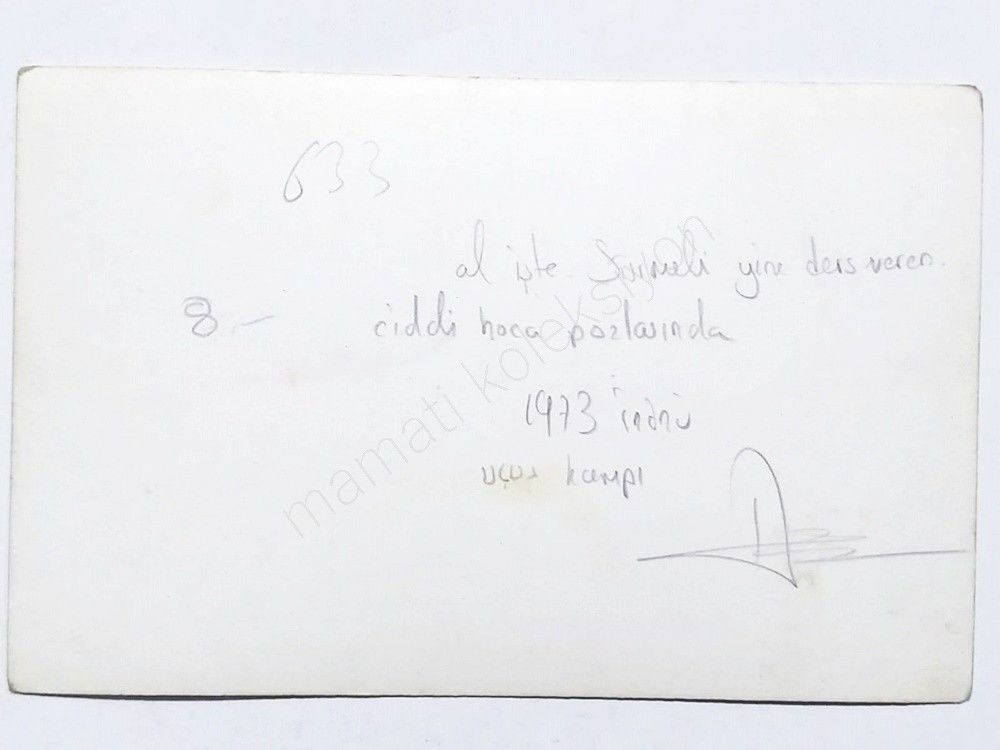 633
al işte yine ders veren
8.-
ciddi hoca pozlarında
1973 İnönü
uçuş kampı
mamati koleksiyon